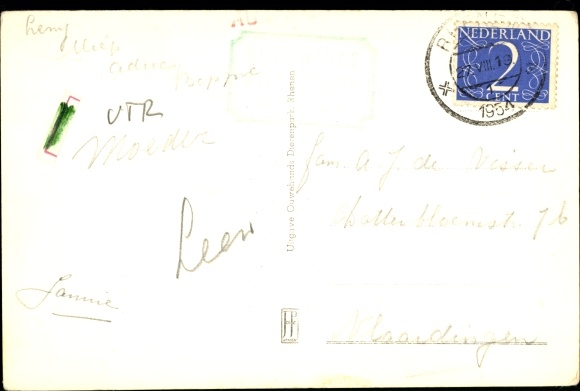 Leny
Miep
Adrie
Beppie
VTR
Moeder
Leen
Jannie
Uitgave Ouwehands Dierenpark Rhenen
NEDERLAND
2
CENT
VIII.19
1954
Fam. A. J. de Visser
7b
Vlaardingen
JP